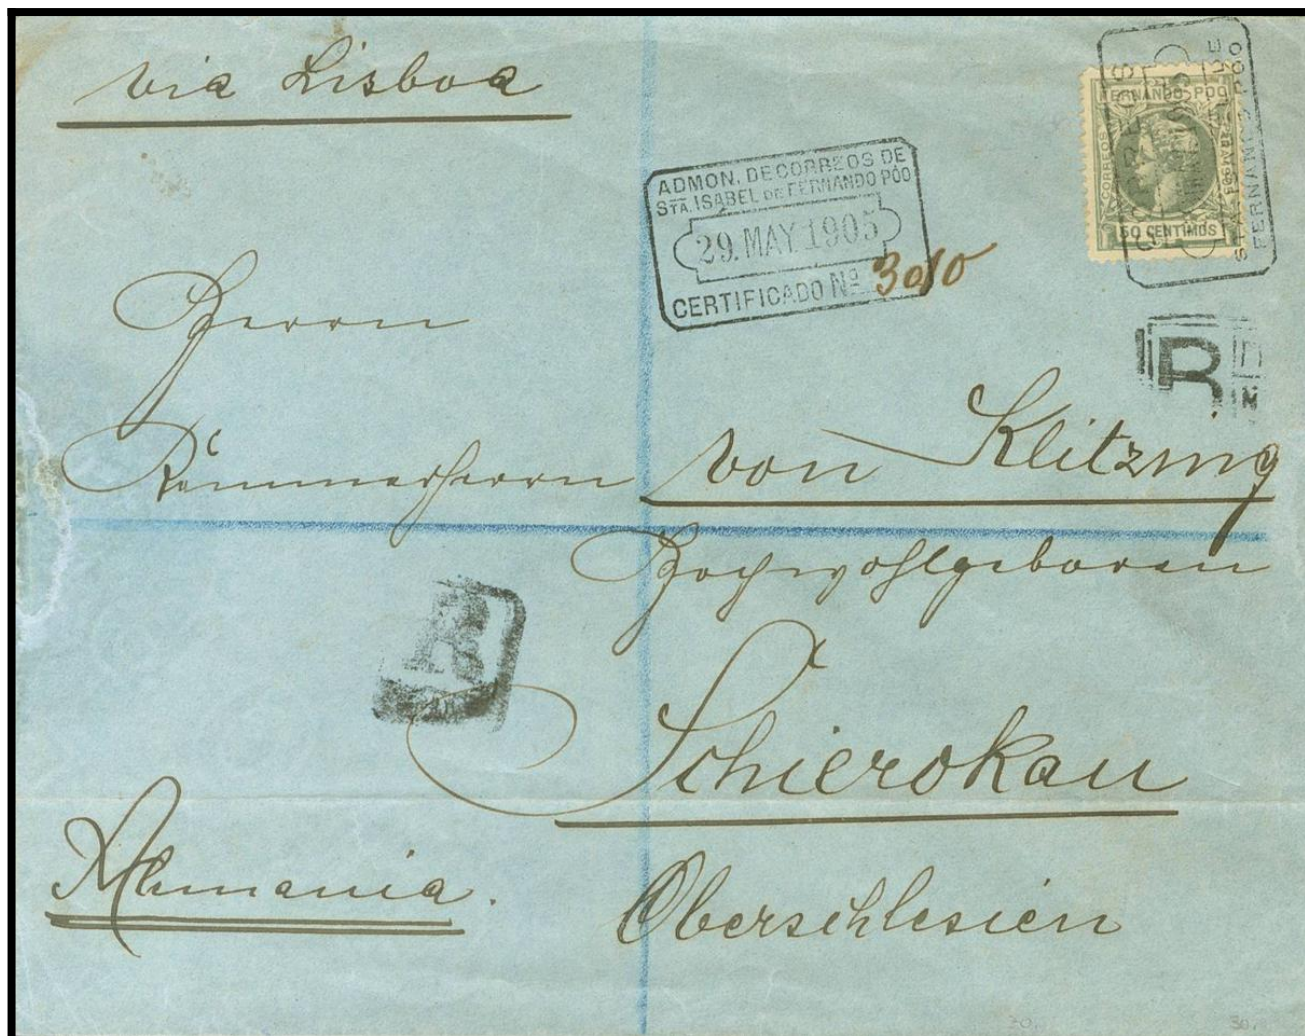 via Lisboa
CORREOS
FERNANDO POO
CORREOS
50 CENTIMOS
STA. ISABEL DE
FERNANDO PÓO
ADMON. DE CORREOS DE
STA. ISABEL DE FERNANDO PÓO
29. MAY 1905
CERTIFICADO Nº 3010
R
Herrn
Kammerherrn von Klitzing
Hochwohlgeboren
R
Schierokau
Alemania.
Oberschlesien